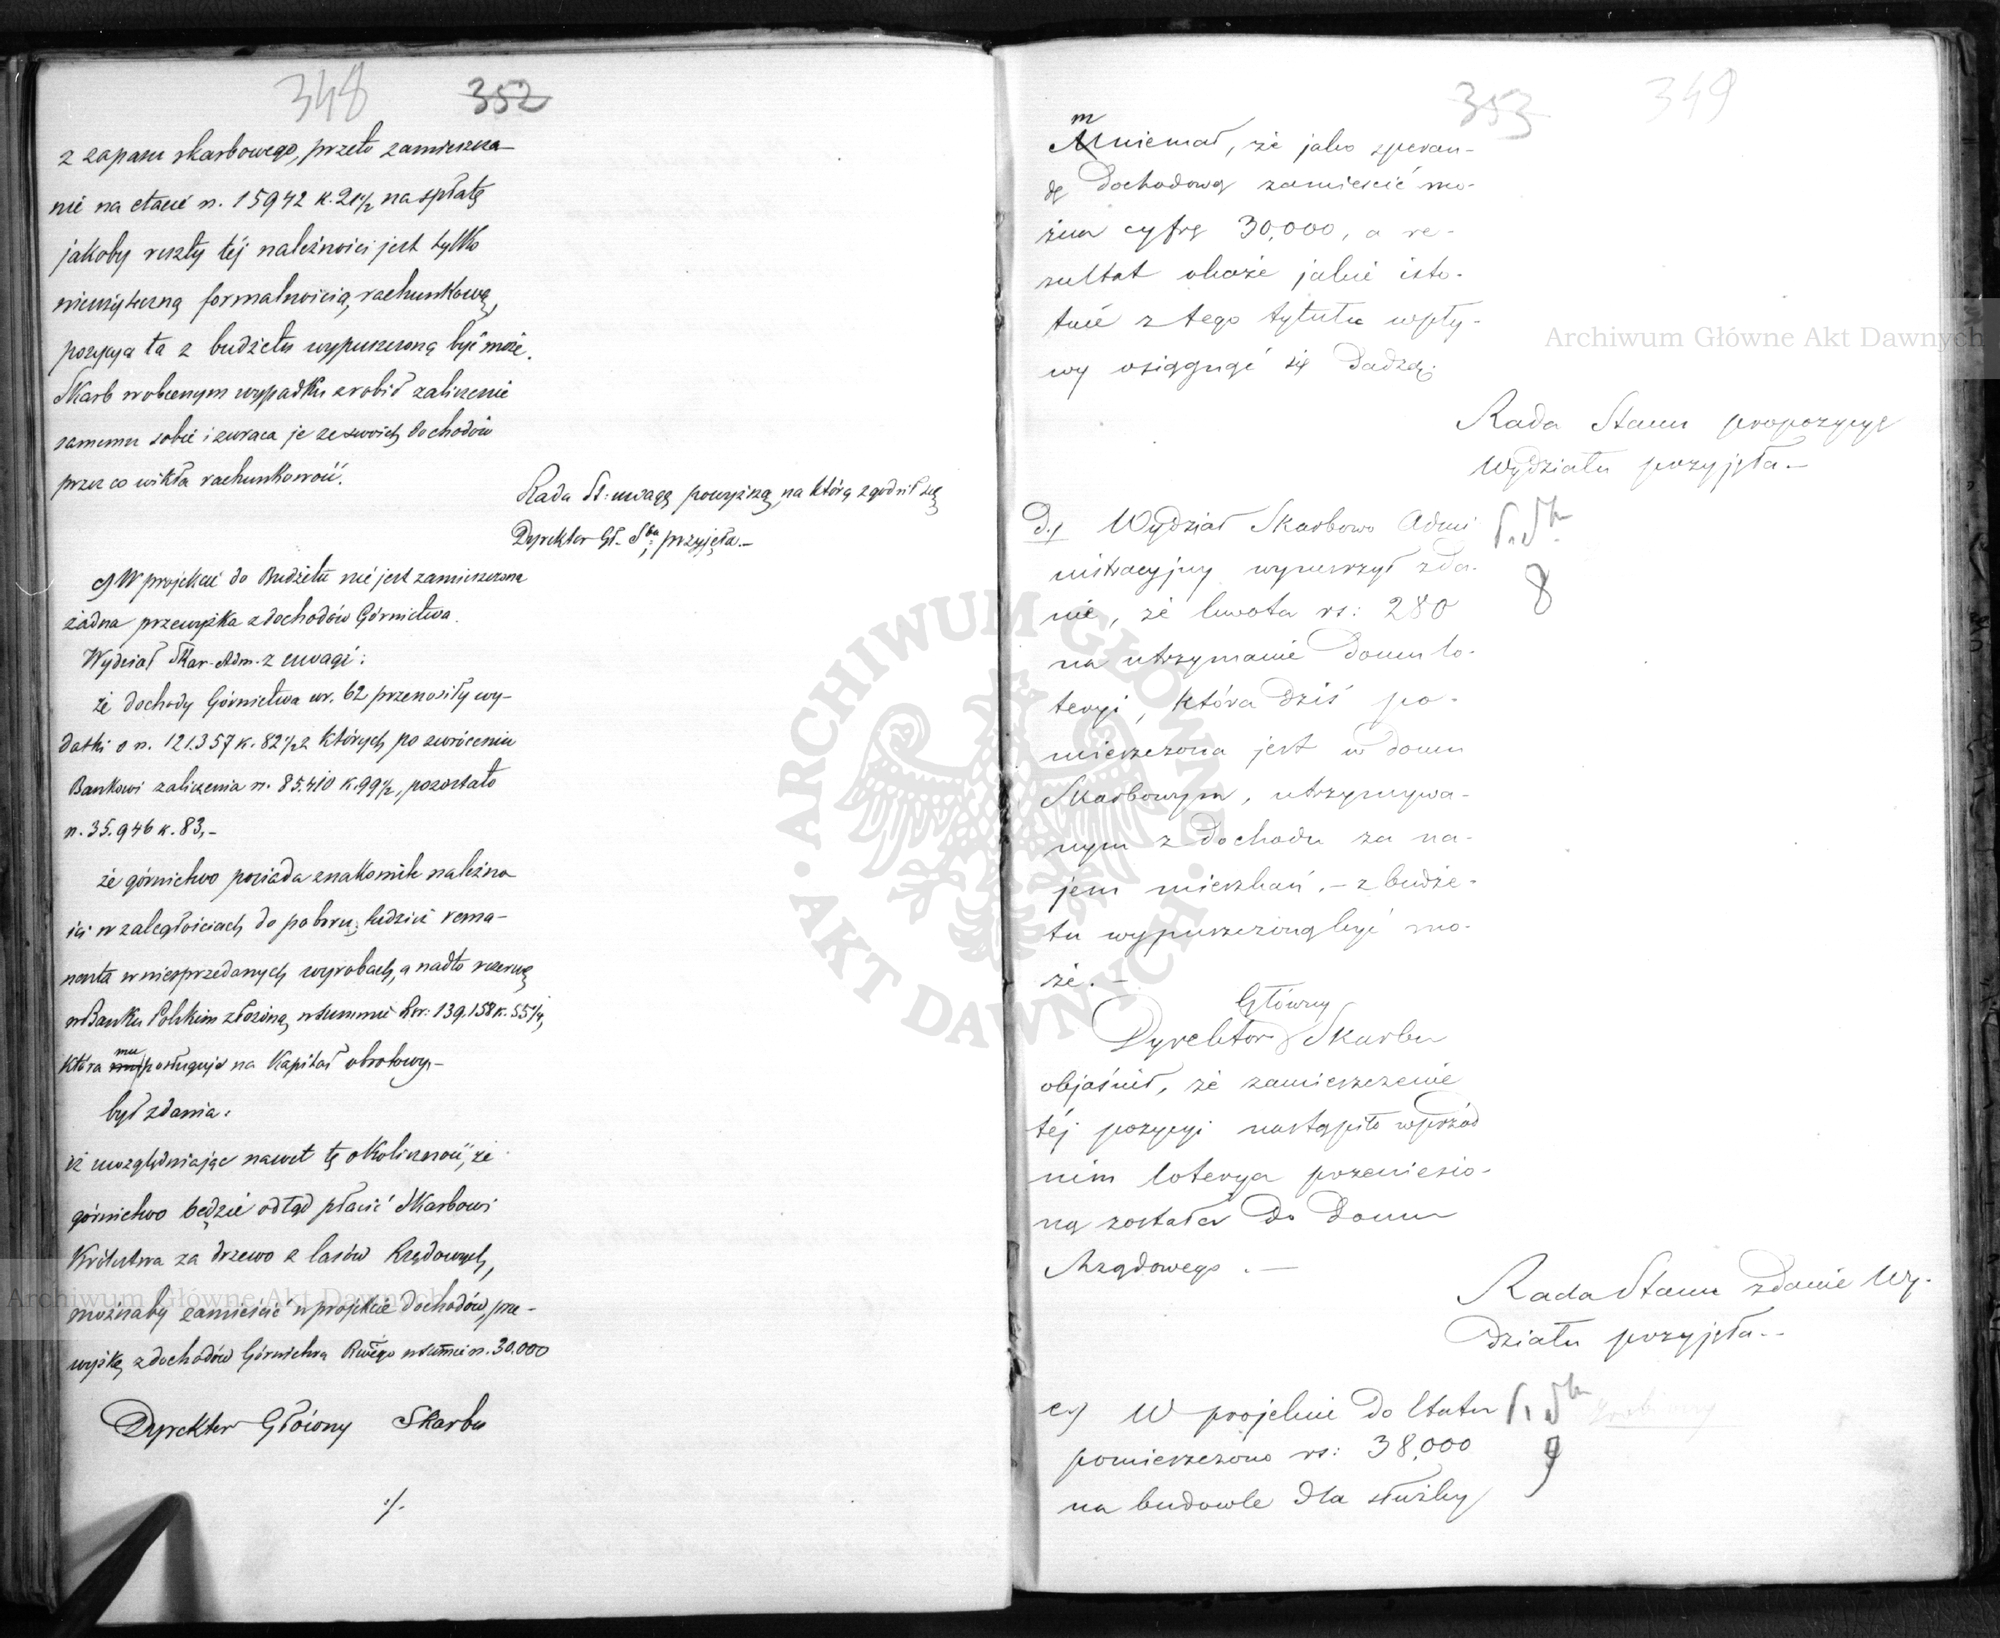 348 352
z zapasu skarbowego, przeto zamieszcza-
nie na etacie rs. 15942 k. 21½ na spłatę
jakoby reszty téj należności jest tylko
nieużyteczną formalnością, rachunkową,
pozycya ta z budżetu wypuszczoną być może.
Skarb w obecnym wypadku zrobił zaliczenie
samemu sobie i zwraca je ze swoich dochodów
przez co wikła rachunkowość.
Rada St: uwagę powyższą, na którą zgodził się
Dyrektor Gł. Sbu: przyjęła.—
c) W projekcie do Budżetu nie jest zamieszczona
żadna przewyżka z dochodów Górnictwa.
Wydział Skar. Adm. z uwagi:
że dochody Górnictwa w r. 62 przenosiły wy-
datki o rs. 121.357 k. 82½ z których po zwróceniu
Bankowi zaliczenia rs. 85.410 k. 99½, pozostało
rs. 35.946 k. 83,-
że górnictwo posiada znakomite należno
ści w zaległościach do poboru, tudzież rema-
nenta w niesprzedanych wyrobach, a nadto rezerwę
w Banku Polskim złożoną, w summie Rsr: 139.158 k. 55¼,
która mu posługuje na Kapitał obrotowy.-
był zdania:
iż uwzględniając nawet tę okoliczność, że
górnictwo będzie odtąd płacić Skarbowi
Królestwa za drzewo z lasów Rządowych,
możnaby zamieścić w projekcie dochodów, prze-
wyżkę z dochodów Górnictwa Rwego w summie rs. 30.000
Dyrektor Główny Skarbu
./.
353 349
m
Mniemał, że jako speran-
dę dochodową zamieścić mo-
żna cyfrę 30,000, a re-
zultat okaże jakie isto-
tnie z tego tytułu wpły-
wy osiągnąć się dadzą.
Rada Stanu propozycyę
Wydziału przyjęła.—
d.) Wydział Skarbowo Admi
nistracyjny wynurzył zda-
nie, że kwota rs: 280
8
na utrzymanie domu lo-
teryi, która dziś po-
mieszczona jest w domu
Skarbowym, utrzymywa-
nym z dochodu za na-
jem mieszkań.— z budże-
tu wypuszczoną być mo-
że.—
Główny
Dyrektor Skarbu
objaśnił, że zamieszczenie
téj pozycyi nastąpiło wprzód
nim loterya przeniesio-
ną została do Domu
Rządowego.—
Rada Stanu zdanie Wy-
działu przyjęła.—
e.) W projekcie do Etatu
pomieszczono rs: 38,000
9
na budowle dla służby
Archiwum Główne Akt Dawnych
Archiwum Główne Akt Dawnych
ARCHIWUM GŁÓWNE · AKT DAWNYCH ·